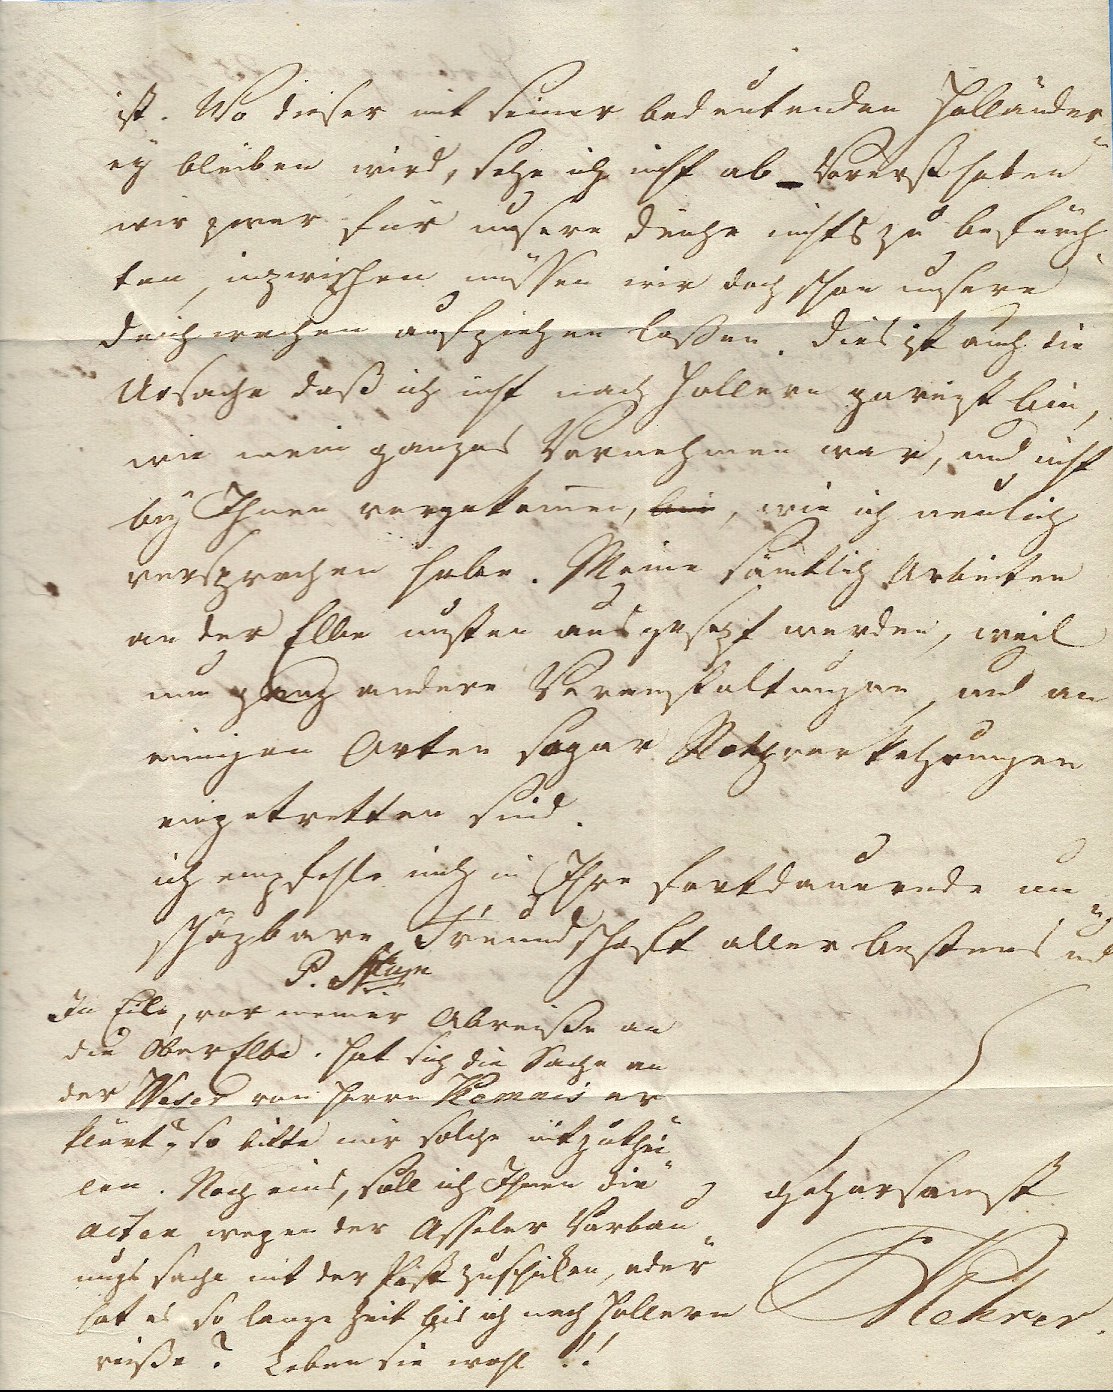 ist. Wo dieser mit seiner bedeutenden Holländer¬
ey bleiben wird, sehe ich nicht ab – Vorerst haben
wir zwar für unsere Deiche nichts zu befürch¬
ten, inzwischen müssen wir doch schon unsere
Deichwachen aufziehen laßen. Dies ist auch die
Ursache daß ich nicht nach Hollern gereist bin,
wie mein ganzes Vornehmen war, und nicht
bey Ihnen vorgekommen, bin, wie ich neulich
versprochen habe. Meine sämtlich Arbeiten
an der Elbe musten ausgesezt werden, weil
nun ganz andere Veranstaltungen, und an
einigen Orten sogar Nothvorkehrungen
eingetretten sind.
ich empfehle mich in Ihre fortdauernde un¬
schäzbare Freundschaft aller bestens und
P. Skum
In Eile, vor meiner Abreise an
die OberElbe. Hat sich die Sache an
der Weser von Herrn Kemnis er¬
klärt? so bitte mir solche mitzuthei¬
len. Noch eins, soll ich Ihnen die
Acten wegen der Asseler Vorbau¬
ungs sache mit der Post zuschicken, oder
hat es so lange Zeit bis ich nach Hollern
reise? Leben sie wohl!!
gehorsamst
Kehrer.